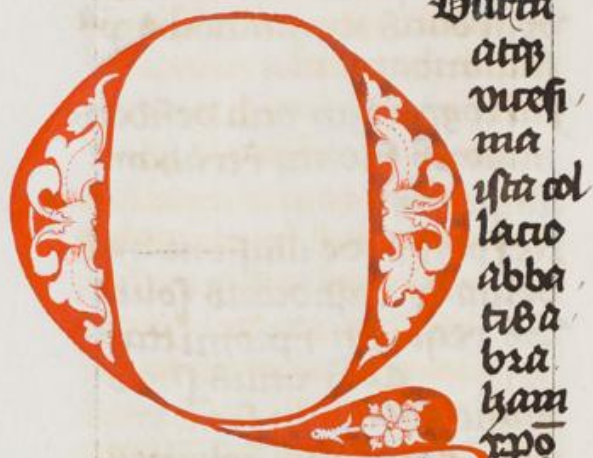 Q
Uarta
atqꝫ
vicesi
ma
ista col
lacio
abba
tis a
bra
ham
xpō